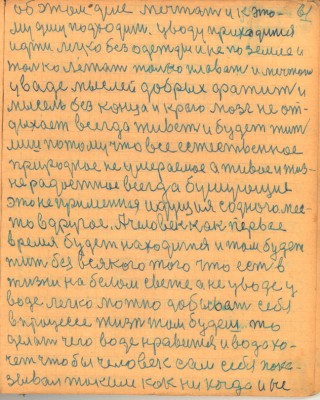 об этом деле мечтат и к это-
му делу подходит. уводу приходится
идти легко без одежды и не по земле а
только летат только плават и мечтат
уваде мыслей добрых хватит и
мысель без конца и краю мозг не от-
дыхает всегда живет и будет жит
лиш потому что все естественное
природное не умераемое а живое и жиз-
нерадостное всегда бушующие
это не применяя идущия содного мес-
то вдругое. А человек как первое
время будет находится и там будет
жит без всякого того что ест в
жизни на белом свете а не уводе у
воде легко можно добиват себя
впроцессе жизн там будеш то
делат чего воде нравется и вода хо-
чет чтобы человек сам себя пока-
зывал таким как никогда и не